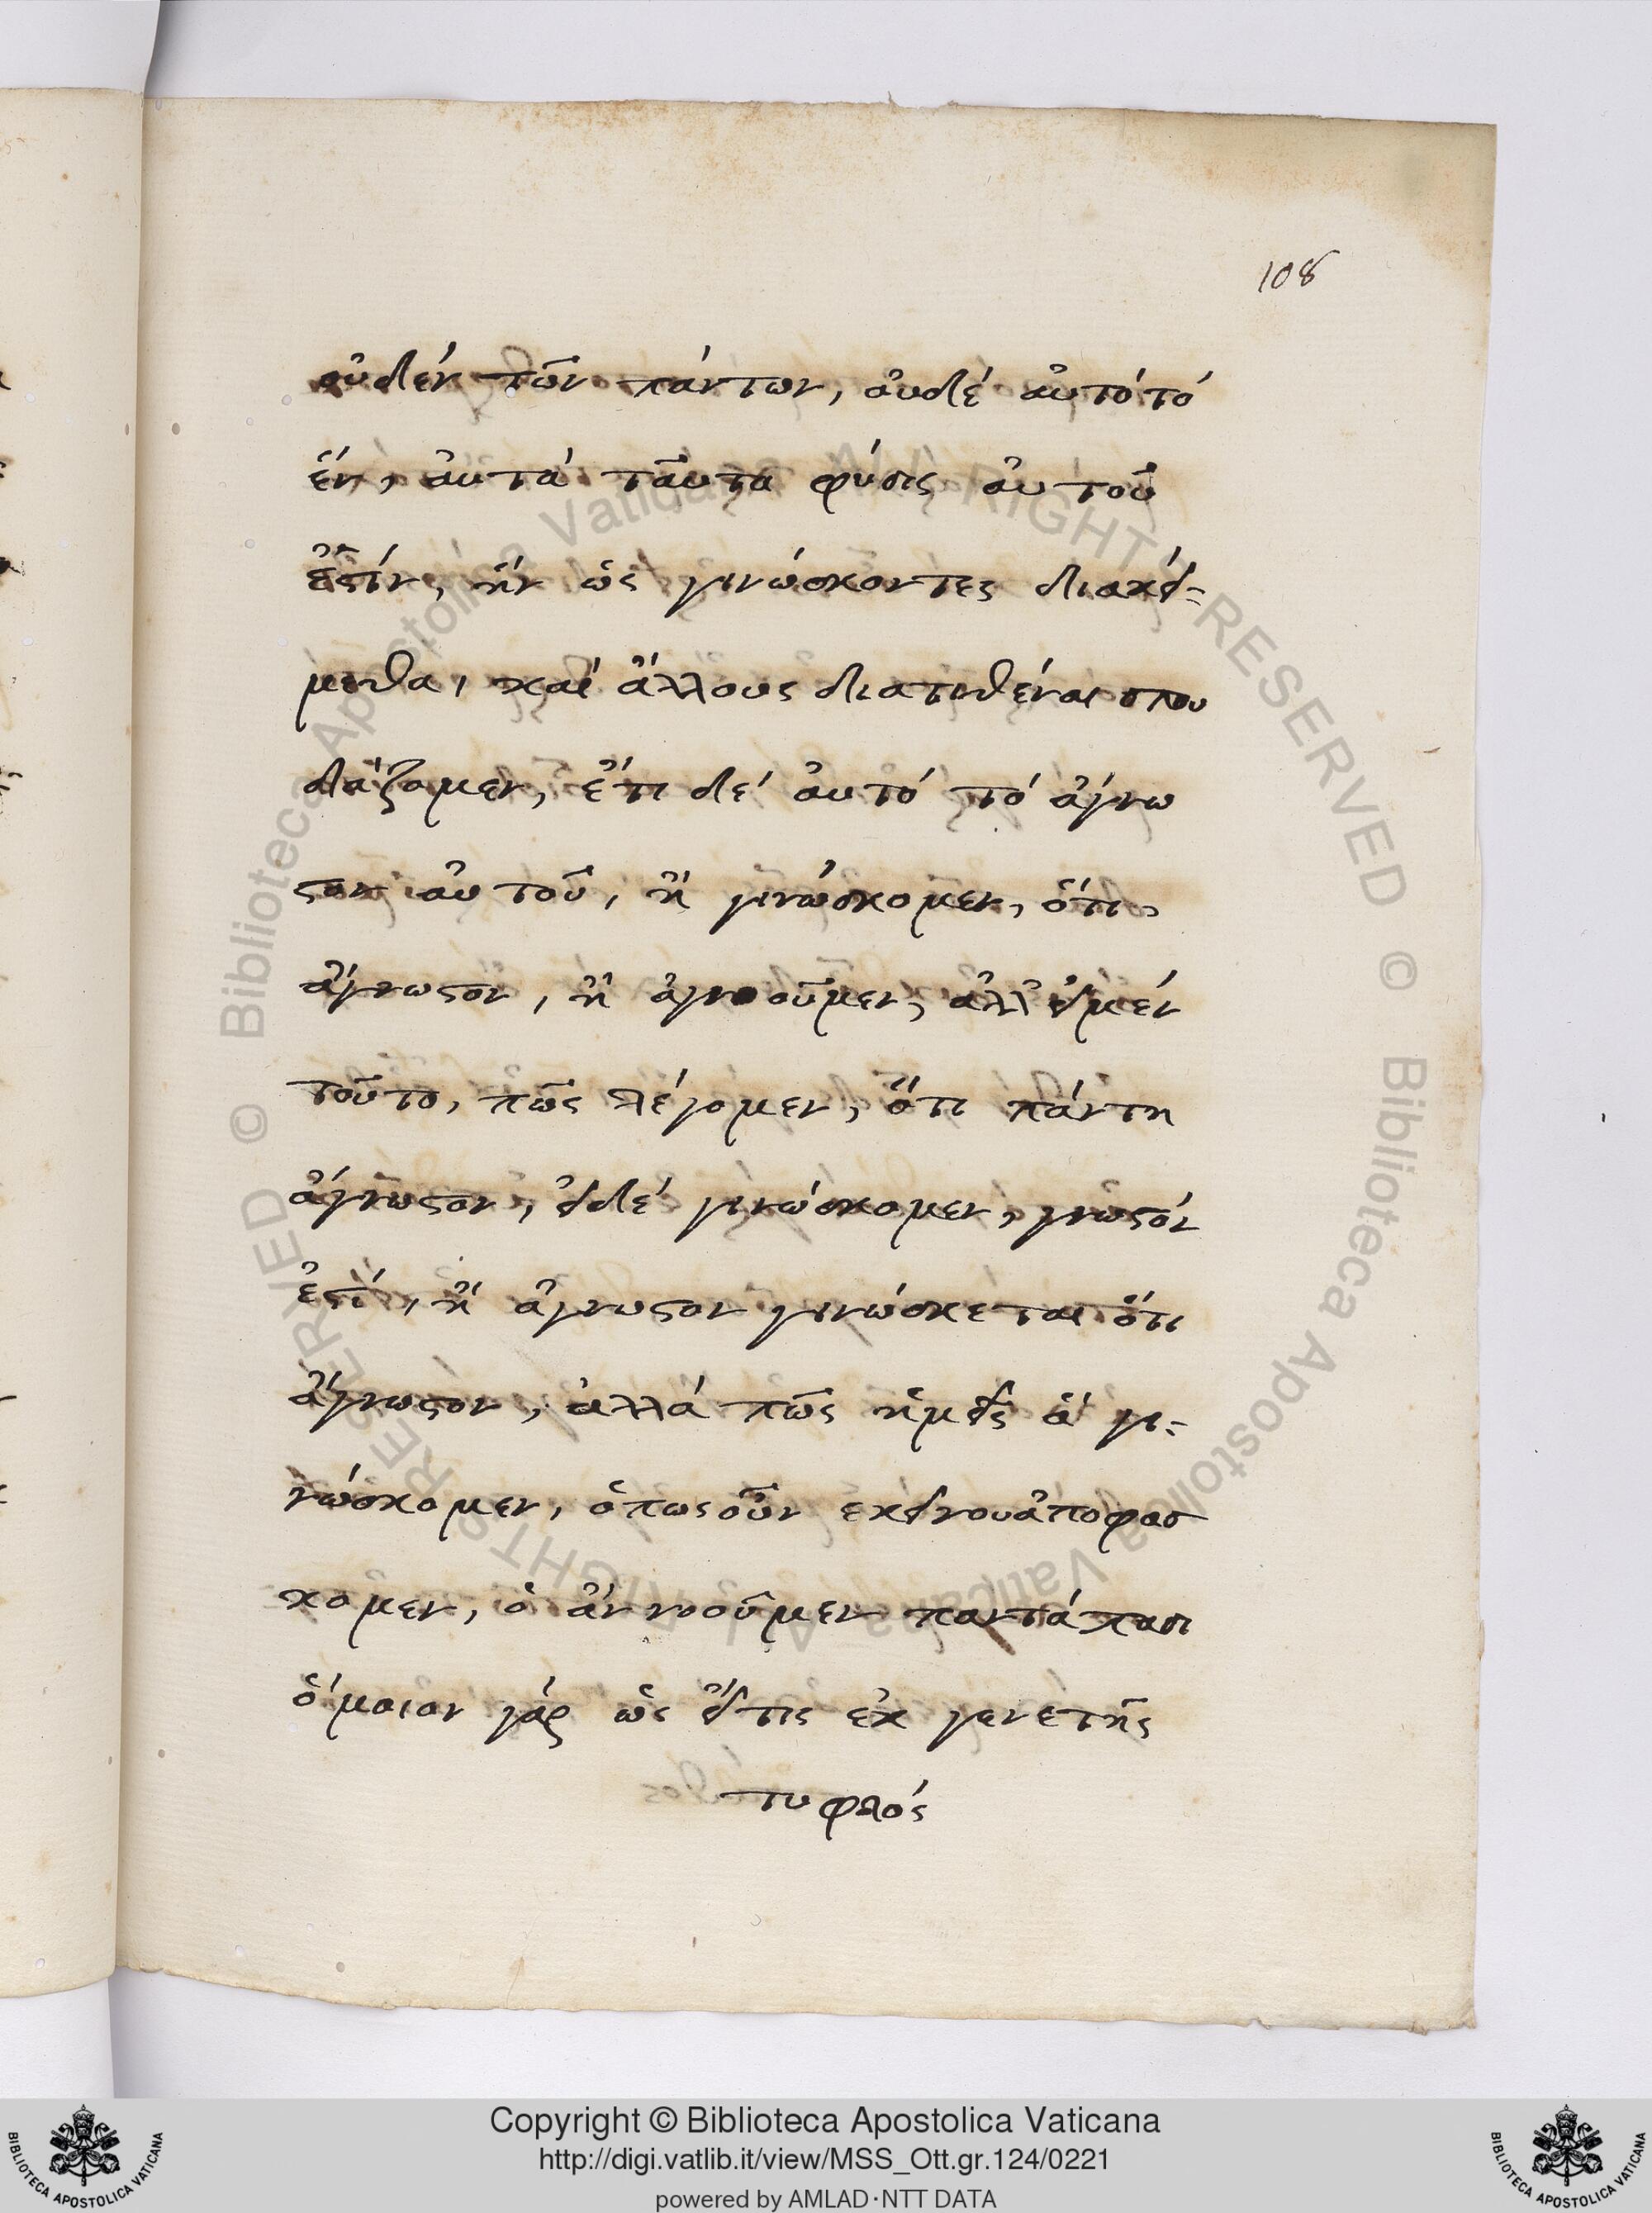 108
οὐδέν τῶν πάντων, ὀυδέ ἀυτό τό
ἕν, ἀυτά ταῦτα φύσις ἀυτοῦ
ἐστίν, ἥν ὡς γινώσκοντες διακεί-
μεθα, καί ἄλλους διατιθέναι σπου
δάζομεν, ἔτι δέ ἀυτό τό ἄγνω
στον ἀυτοῦ, ἤ γινώσκομεν, ὅτι,
ἄγνωστον, ἤ ἀγνοοῦμεν, ἀλλ' εἰ μέν
τοῦτο, πῶς λέγομεν, ὅτι πάντη
ἄγνωστον, εἰ δέ γινώσκομεν, γνωστόν
ἐστί, ἤ ἄγνωστον γινώσκεται ὅτι
ἄγνωστον, ἀλλά πῶς ἡμεῖς ἅ γι-
νώσκομεν, ὁπωσοῦν εκείνου ἀποφασ
κομεν, ὁ ἄν νοοῦμεν παντάπασι
ὅμοιον γάρ ὡς εἴτις ἐκ γενετῆς
τυφλός
Copyright © Biblioteca Apostolica Vaticana
http://digi.vatlib.it/view/MSS_Ott.gr.124/0221
powered by AMLAD·NTT DATA
BIBLIOTECA APOSTOLICA VATICANA
BIBLIOTECA APOSTOLICA VATICANA
© Biblioteca Apostolica Vaticana ALL RIGHTS RESERVED
© Biblioteca Apostolica Vaticana ALL RIGHTS RESERVED